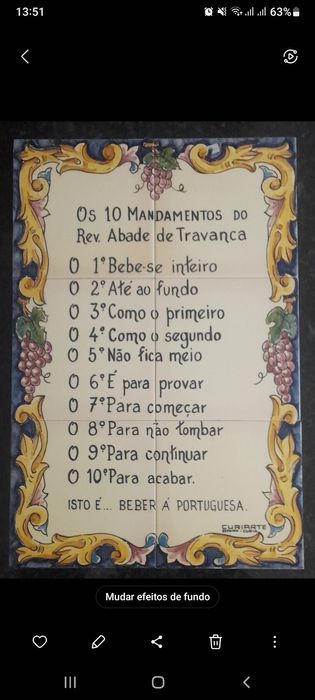 13:51
63%
OS 10 MANDAMENTOS DO
Rev. Abade de Travanca
O 1º Bebe-se inteiro
O 2º Até ao fundo
O 3º Como o primeiro
O 4º Como o segundo
O 5º Não fica meio
O 6º É para provar
O 7º Para começar
O 8º Para não tombar
O 9º Para continuar
O 10º Para acabar.
ISTO É... BEBER Á PORTUGUESA.
CURIARTE
Mudar efeitos de fundo